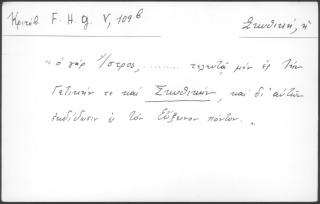 Κριτόβ F. H. G. V, 109 b
Σκυθική, ἡ
"ὁ γὰρ Ἴστρος, ........ τελευτᾷ μὲν ἐς τὴν
Γετικήν τε καὶ Σκυθικήν, καὶ δι' αὐτῶν
ἐκδίδωσιν ἐς τὸν Εὔξεινον πόντον."